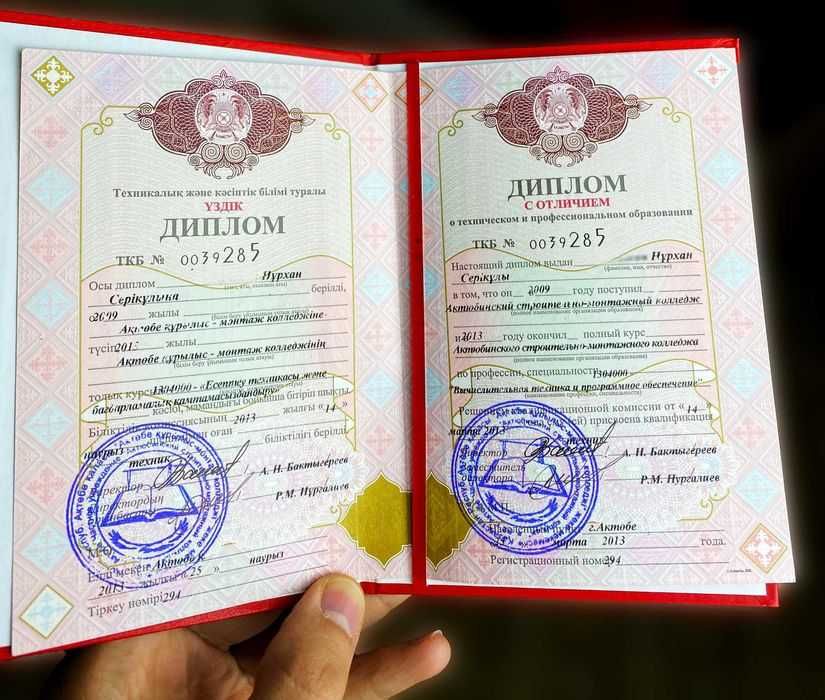 Техникалық және кәсіптік білімі туралы
ҮЗДІК
ДИПЛОМ
ТКБ № 0039285
Осы диплом Нұрхан
Серікұлына берілді,
жылы
Ақтөбе құрылыс - монтаж колледжіне
түсіп
Ақтөбе құрылыс - монтаж колледжінің
толық курсы
1304000 - «Есептеу техникасы және
бағдарламалық қамтамасыздандыру»
2013 жылғы «14»
наурыз техник біліктілігі берілді
А. Н. Бактыгереев
Р.М. Нургалиев
М.О.
Елді мекен Ақтөбе қ.
2013 жылғы «25» наурыз
Тіркеу нөмірі 294
ДИПЛОМ
С ОТЛИЧИЕМ
о техническом и профессиональном образовании
ТКБ № 0039285
Настоящий диплом выдан Нұрхан
(фамилия, имя, отчество)
Серікұлы
в том, что он 2009 году поступил
Актюбинский строительно-монтажный колледж
(полное наименование организации образования)
и 2013 году окончил полный курс
Актюбинского строительно-монтажного колледжа
(полное наименование организации образования)
по профессии, специальности 1304000-
"Вычислительная техника и программное обеспечение"
Решением комиссии от «14»
марта 2013 присвоена квалификация
техник
А. Н. Бактыгереев
Р.М. Нургалиев
Населенный пункт г.Актобе
марта 2013 года.
Регистрационный номер 294